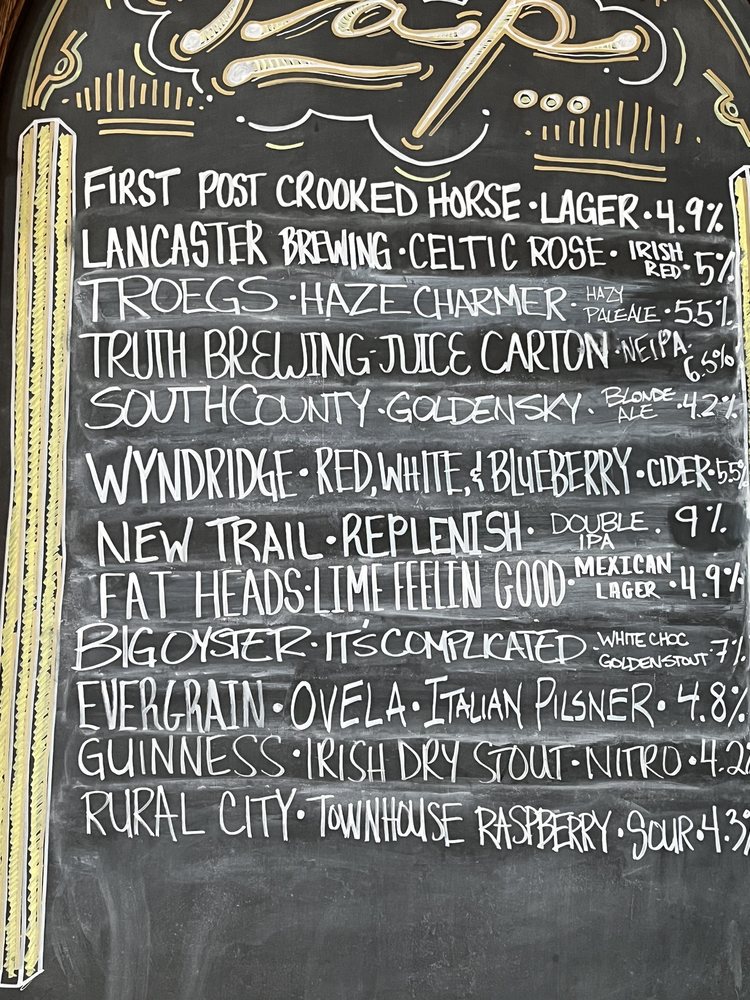 Tap
FIRST POST CROOKED HORSE · LAGER · 4.9%
LANCASTER BREWING · CELTIC ROSE · IRISH RED · 5%
TROEGS · HAZE CHARMER · HAZY PALE ALE · 5.5%
TRUTH BREWING - JUICE CARTON · NEIPA · 6.5%
SOUTH COUNTY · GOLDEN SKY · BLONDE ALE · 4.2%
WYNDRIDGE · RED, WHITE, & BLUEBERRY · CIDER · 5.5%
NEW TRAIL · REPLENISH · DOUBLE IPA · 9%
FAT HEADS · LIME FEELIN GOOD · MEXICAN LAGER · 4.9%
BIG OYSTER · IT'S COMPLICATED · WHITE CHOC GOLDEN STOUT · 7%
EVERGRAIN · OVELA · ITALIAN PILSNER · 4.8%
GUINNESS · IRISH DRY STOUT · NITRO · 4.2%
RURAL CITY · TOWNHOUSE RASPBERRY · SOUR · 4.3%